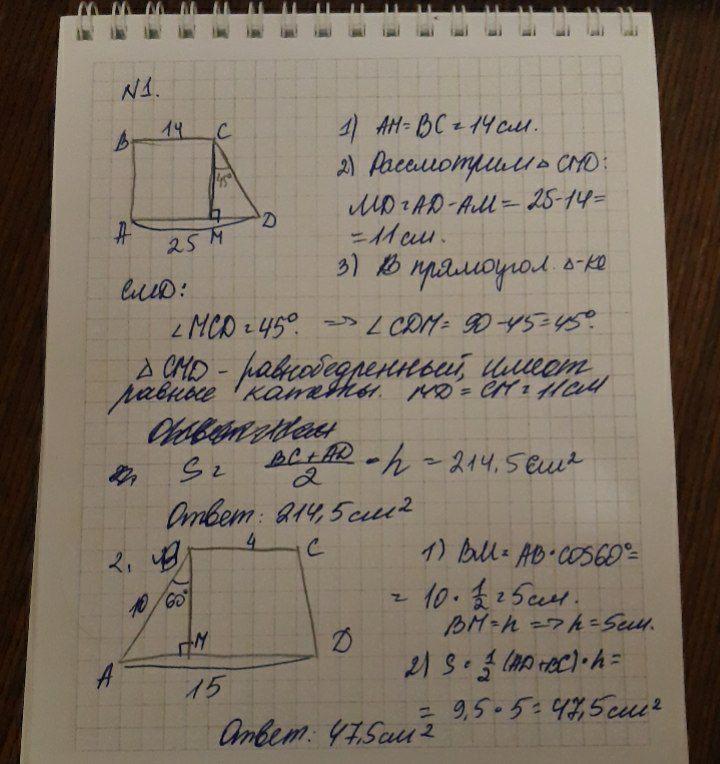 N1.
B 14 C
45°
A 25 M D
1) AH = BC = 14 см.
2) Рассмотрим △ CMD:
MD = AD - AM = 25 - 14 =
= 11 см.
3) В прямоугол. △-ке
CMD:
∠MCD = 45°. => ∠CDM = 90 - 45 = 45°.
△ CMD - равнобедренный, имеет
равные катеты. MD = CM = 11 см
S = BC + AD / 2 • h = 214,5 см²
Ответ: 214,5 см²
2. B 4 C
10 60°
A M D
15
1) BM = AB • cos60° =
= 10 • 1/2 = 5 см.
BM = h => h = 5 см.
2) S = 1/2 (AD + BC) • h =
= 9,5 • 5 = 47,5 см²
Ответ: 47,5 см²